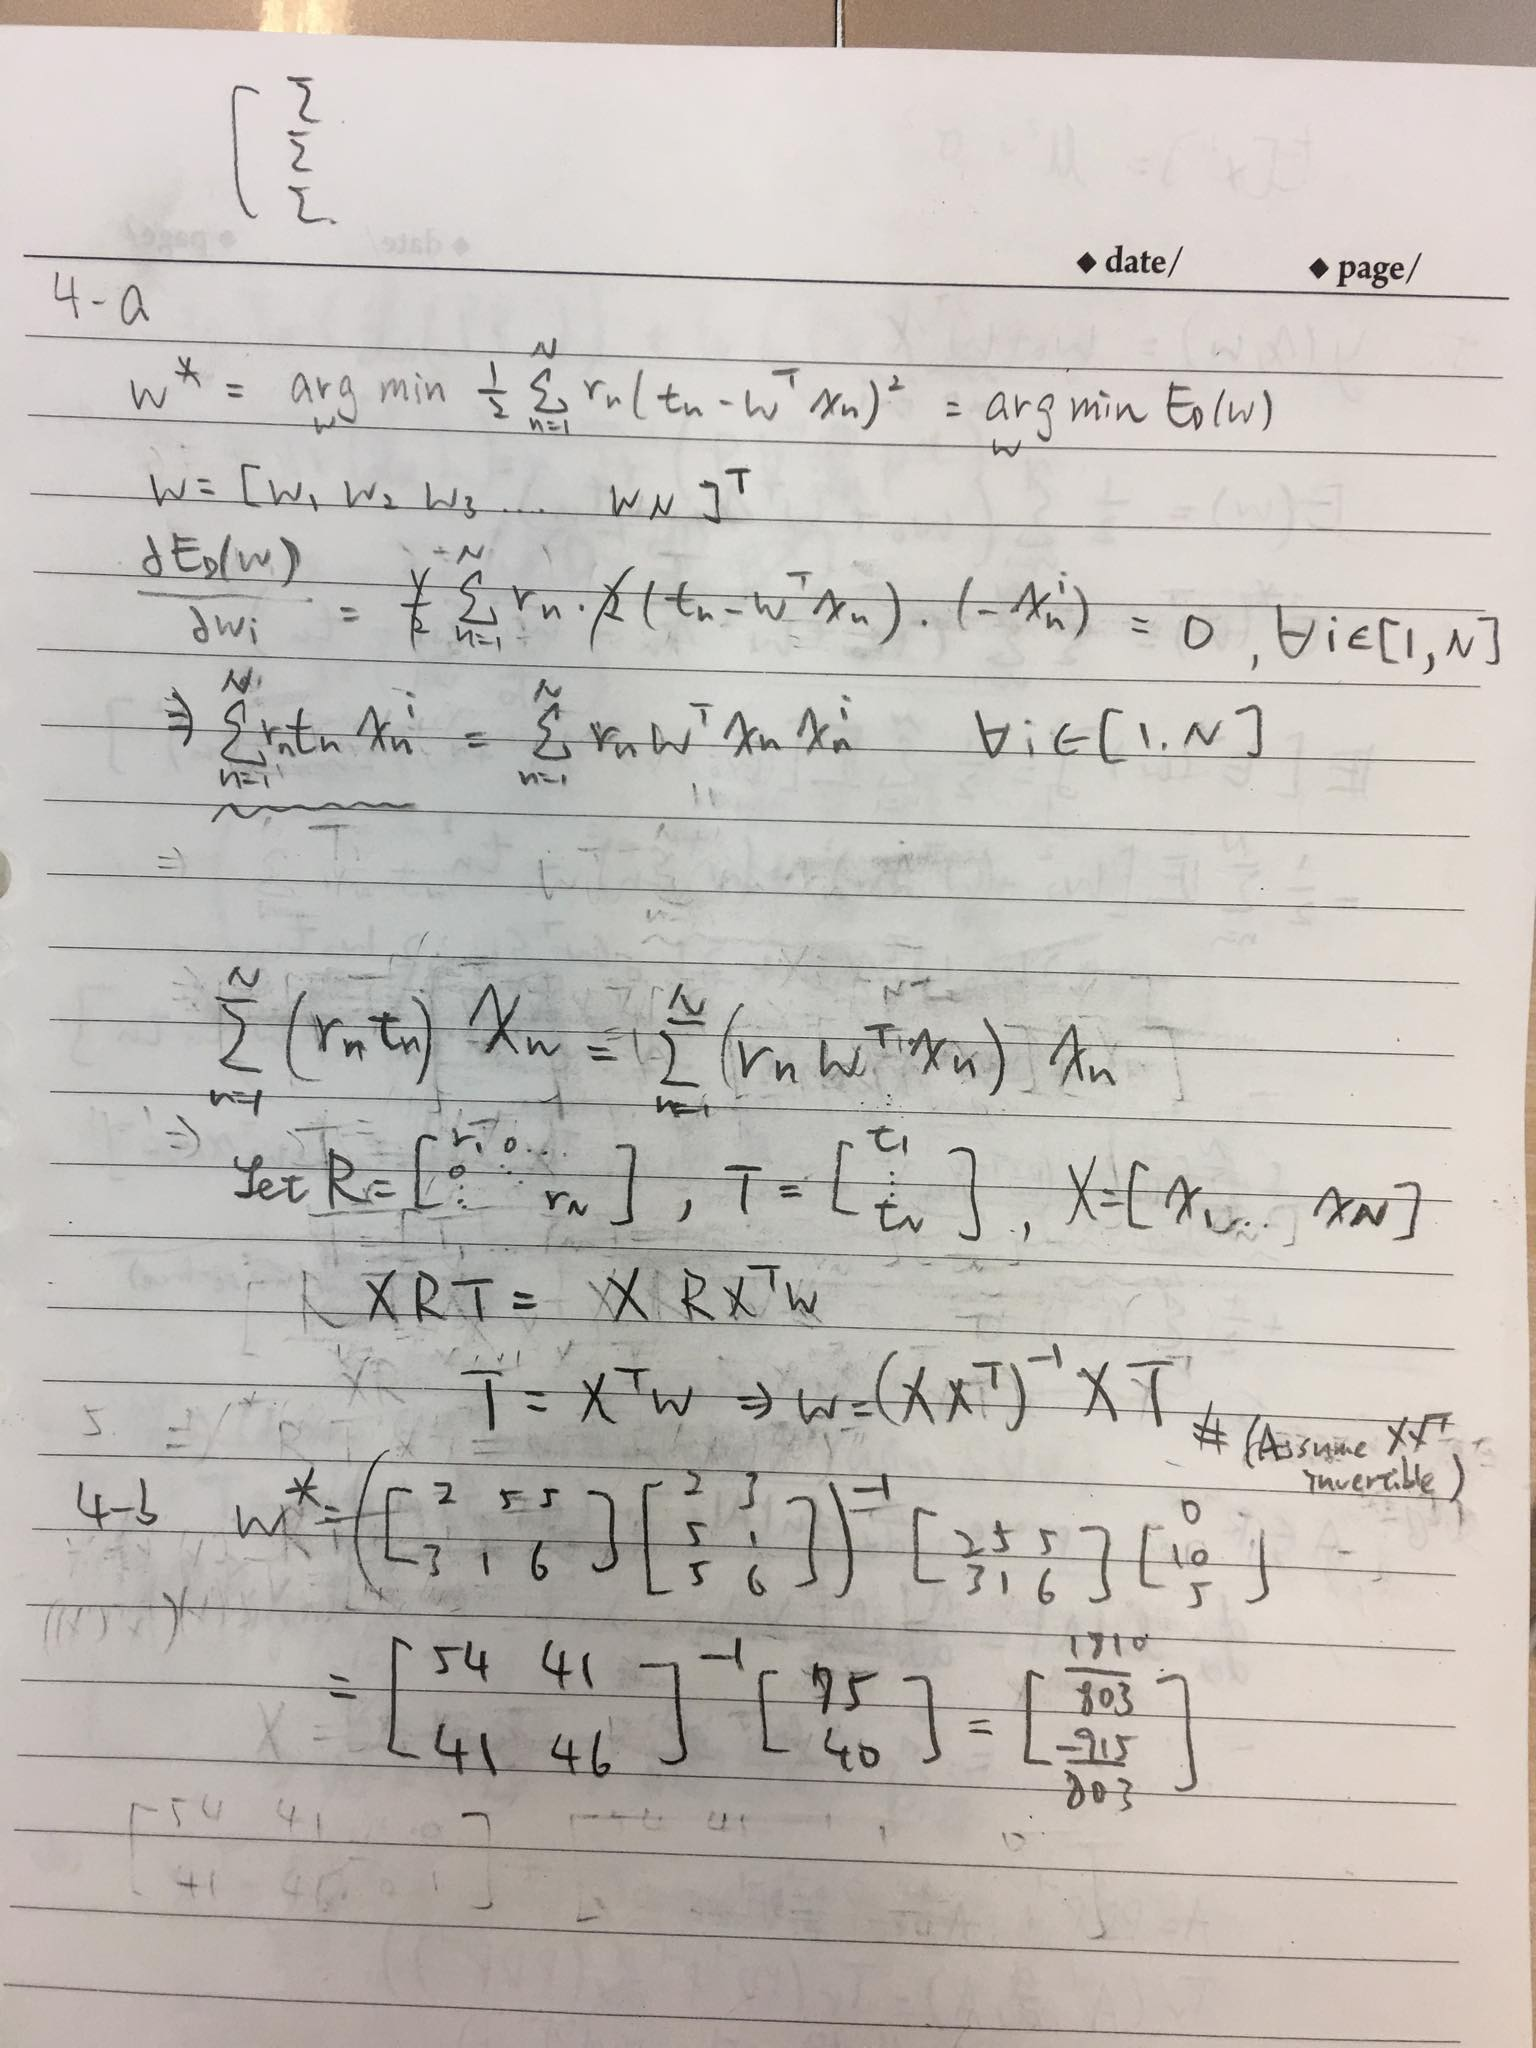 [ Σ
Σ
Σ
◆ date/ ◆ page/
4-a
w* = arg min_w 1/2 Σ_{n=1}^{N} rn(tn - w^T xn)^2 = arg min_w E_D(w)
w = [w1 w2 w3 ... wN]^T
∂E_D(w)/∂wi = 1/2 Σ_{n=1}^{N} rn · 2(tn - w^T xn) · (-xn^i) = 0, ∀i∈[1,N]
⇒ Σ_{n=1}^{N} rn tn xn^i = Σ_{n=1}^{N} rn w^T xn xn^i ∀i∈[1.N]
⇒
Σ_{n=1}^{N} (rn tn) Xn = Σ_{n=1}^{N} (rn w^T xn) xn
⇒
Let R = [r1 0 ... 0 ⋱ ⋮ rN], T = [t1 ⋮ tN], X = [x1 ... xN]
XRT = XRX^T w
T = X^T w ⇒ w = (XX^T)^-1 XT # (Assume XX^T invertible)
4-b w* = ([2 5 5; 3 1 6] [2 3; 5 1; 5 6])^-1 [2 5 5; 3 1 6] [0; 10; 5]
= [54 41; 41 46]^-1 [75; 40] = [1810/803; -915/803]